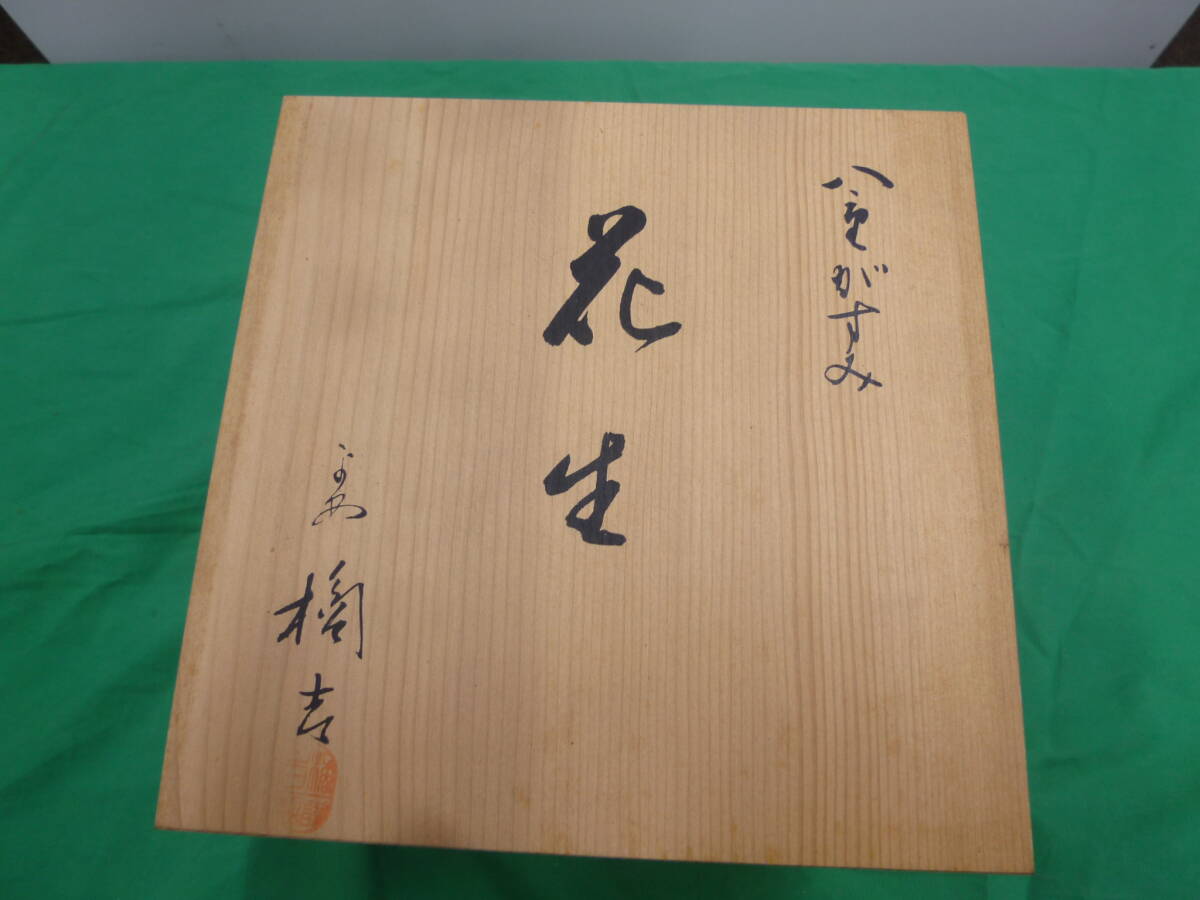 八重がすみ
花生
橘吉